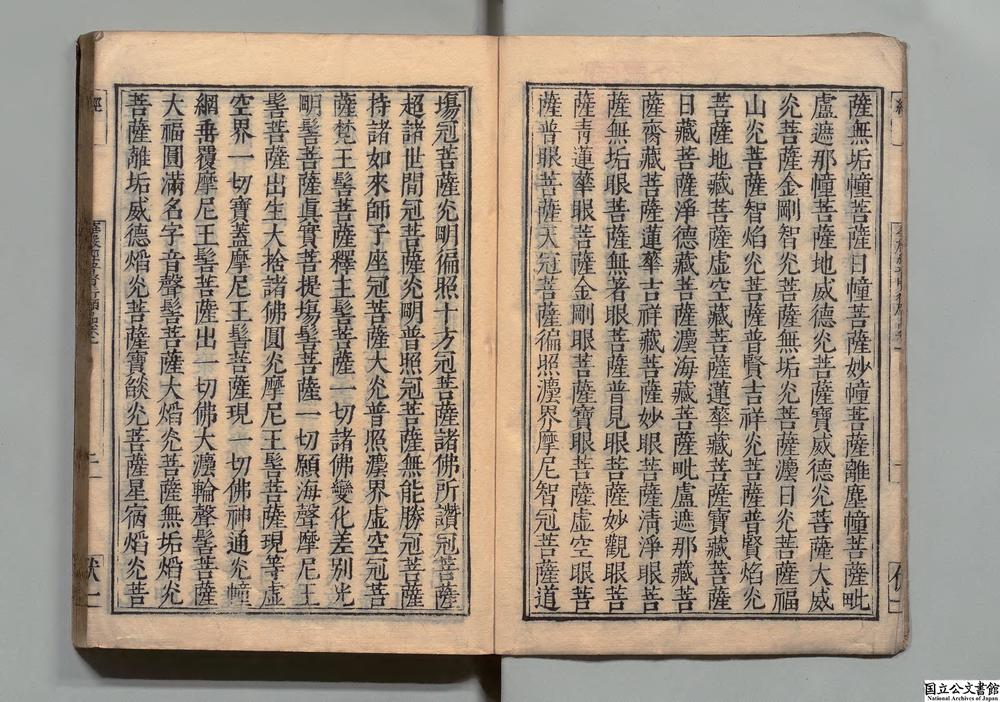 薩無垢幢菩薩日幢菩薩妙幢菩薩離塵幢菩薩毗
盧遮那幢菩薩地威德光菩薩寶威德光菩薩大威
光菩薩金剛智光菩薩無垢光菩薩灋日光菩薩福
山光菩薩智焰光菩薩普賢吉祥光菩薩普賢焰光
菩薩地藏菩薩虛空藏菩薩蓮華藏菩薩寶藏菩薩
日藏菩薩淨德藏菩薩灋海藏菩薩毗盧遮那藏菩
薩齎藏菩薩蓮華吉祥藏菩薩妙眼菩薩清淨眼菩
薩無垢眼菩薩無著眼菩薩普見眼菩薩妙觀眼菩
薩青蓮華眼菩薩金剛眼菩薩寶眼菩薩虛空眼菩
薩普眼菩薩天冠菩薩徧照灋界摩尼智冠菩薩道
塲冠菩薩光明徧照十方冠菩薩諸佛所讚冠菩薩
超諸世間冠菩薩光明普照冠菩薩無能勝冠菩薩
持諸如來師子座冠菩薩大光普照灋界虛空冠菩
薩梵王髻菩薩釋主髻菩薩一切諸佛變化差別光
明髻菩薩眞實菩提塲髻菩薩一切願海聲摩尼王
髻菩薩出生大捨諸佛圓光摩尼王髻菩薩現等虛
空界一切寶蓋摩尼王髻菩薩現一切佛神通光幢
網垂覆摩尼王髻菩薩出一切佛大灋輪聲髻菩薩
大福圓滿名字音聲髻菩薩大熖光菩薩無垢熖光
菩薩離垢威德熖光菩薩寶燄光菩薩星宿熖光菩
經
二
伏一
国立公文書館
National Archives of Japan